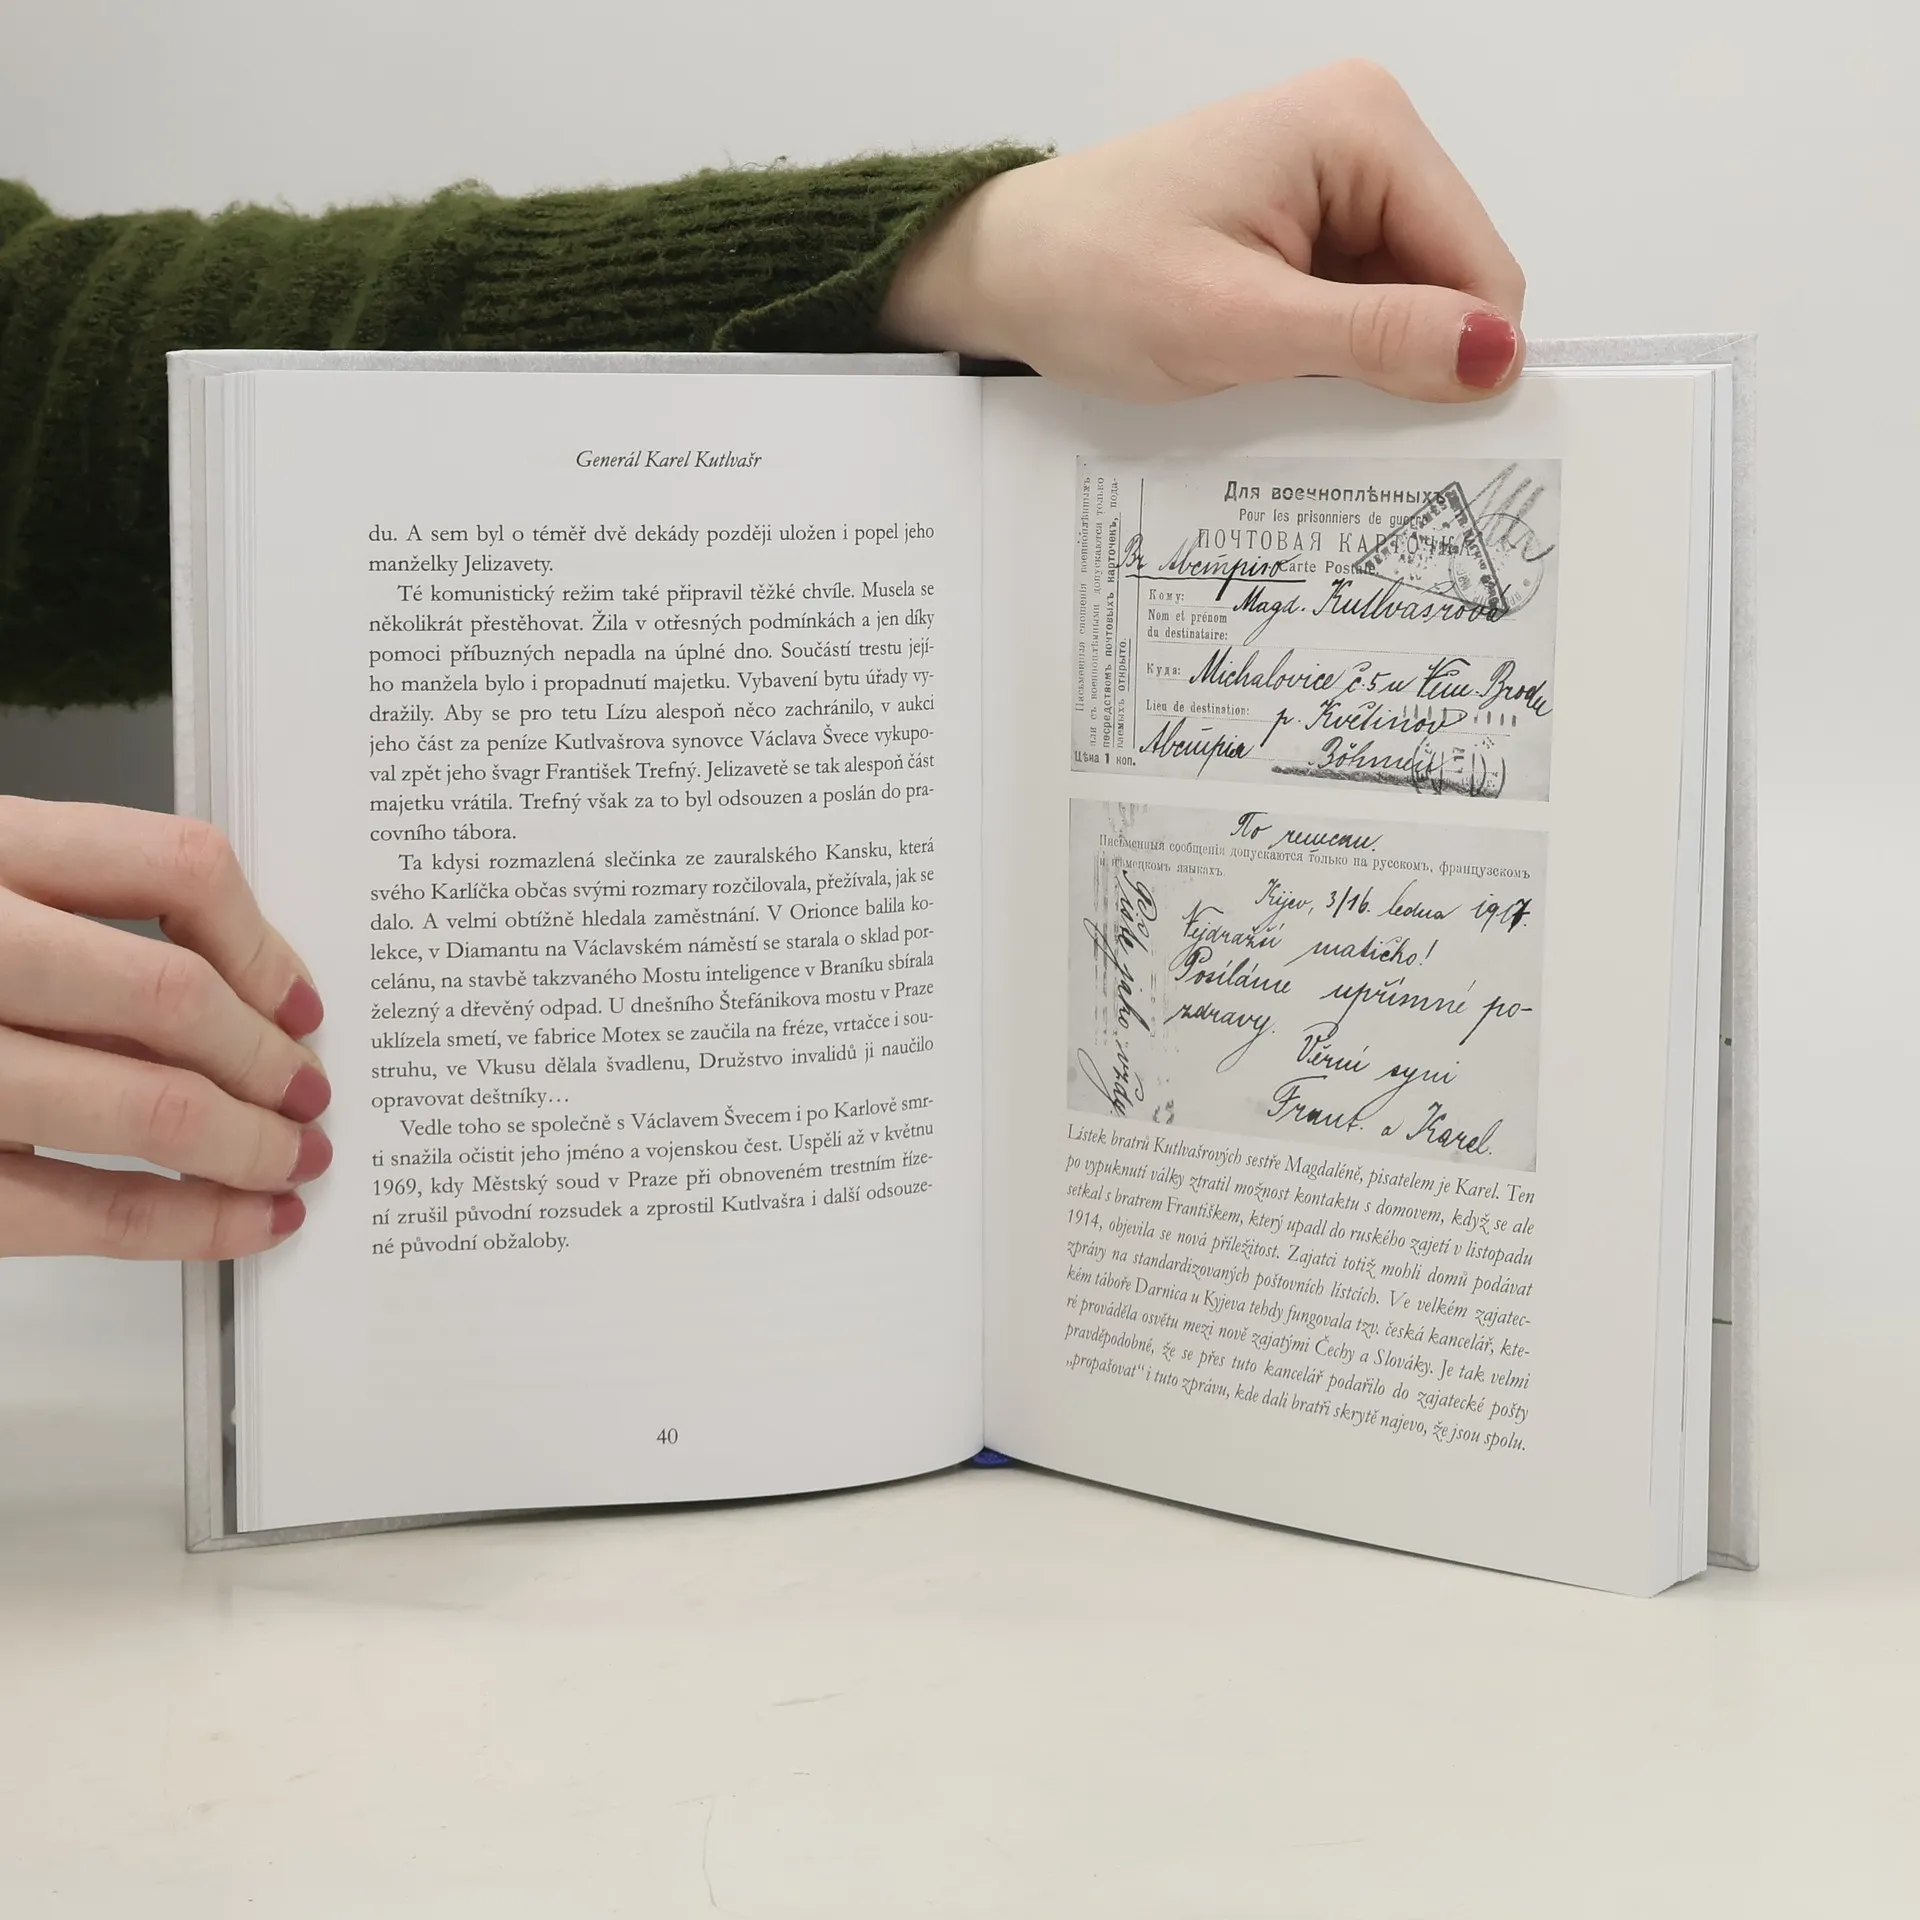 Generál Karel Kutlvašr
du. A sem byl o téměř dvě dekády později uložen i popel jeho
manželky Jelizavety.
Té komunistický režim také připravil těžké chvíle. Musela se
několikrát přestěhovat. Žila v otřesných podmínkách a jen díky
pomoci příbuzných nepadla na úplné dno. Součástí trestu její-
ho manžela bylo i propadnutí majetku. Vybavení bytu úřady vy-
dražily. Aby se pro tetu Lízu alespoň něco zachránilo, v aukci
jeho část za peníze Kutlvašrova synovce Václava Švece vykupo-
val zpět jeho švagr František Trefný. Jelizavetě se tak alespoň část
majetku vrátila. Trefný však za to byl odsouzen a poslán do pra-
covního tábora.
Ta kdysi rozmazlená slečinka ze zauralského Kansku, která
svého Karlíčka občas svými rozmary rozčilovala, přežívala, jak se
dalo. A velmi obtížně hledala zaměstnání. V Orionce balila ko-
lekce, v Diamantu na Václavském náměstí se starala o sklad por-
celánu, na stavbě takzvaného Mostu inteligence v Braníku sbírala
železný a dřevěný odpad. U dnešního Štefánikova mostu v Praze
uklízela smetí, ve fabrice Motex se zaučila na fréze, vrtačce i sou-
struhu, ve Vkusu dělala švadlenu, Družstvo invalidů ji naučilo
opravovat deštníky…
Vedle toho se společně s Václavem Švecem i po Karlově smr-
ti snažila očistit jeho jméno a vojenskou čest. Uspěli až v květnu
1969, kdy Městský soud v Praze při obnoveném trestním říze-
ní zrušil původní rozsudek a zprostil Kutlvašra i další odsouze-
né původní obžaloby.
40
Для военноплѣнныхъ
Pour les prisonniers de guerre
ПОЧТОВАЯ КАРТОЧКА
Carte Postale
Кому:
Magd. Kutlvašrová
Nom et prénom
du destinataire:
Куда: Michalovice č. 5 u Něm. Brodu
Lieu de destination: p. Květinov
Австрія Böhmen
Цѣна 1 коп.
Письменныя сообщенія допускаются только на русскомъ, французскомъ
и нѣмецкомъ языкахъ.
Kijev, 3/16. ledna 1917.
Nejdražší matičko!
Posíláme upřímné po-
zdravy.
Věrní syni
Frant. a Karel.
Lístek bratrů Kutlvašrových sestře Magdaléně, pisatelem je Karel. Ten
po vypuknutí války ztratil možnost kontaktu s domovem, když se ale
setkal s bratrem Františkem, který upadl do ruského zajetí v listopadu
1914, objevila se nová příležitost. Zajatci totiž mohli domů podávat
zprávy na standardizovaných poštovních lístcích. Ve velkém zajatec-
kém táboře Darnica u Kyjeva tehdy fungovala tzv. česká kancelář, kte-
ré prováděla osvětu mezi nově zajatými Čechy a Slováky. Je tak velmi
pravděpodobné, že se přes tuto kancelář podařilo do zajatecké pošty
„propašovat“ i tuto zprávu, kde dali bratři skrytě najevo, že jsou spolu.